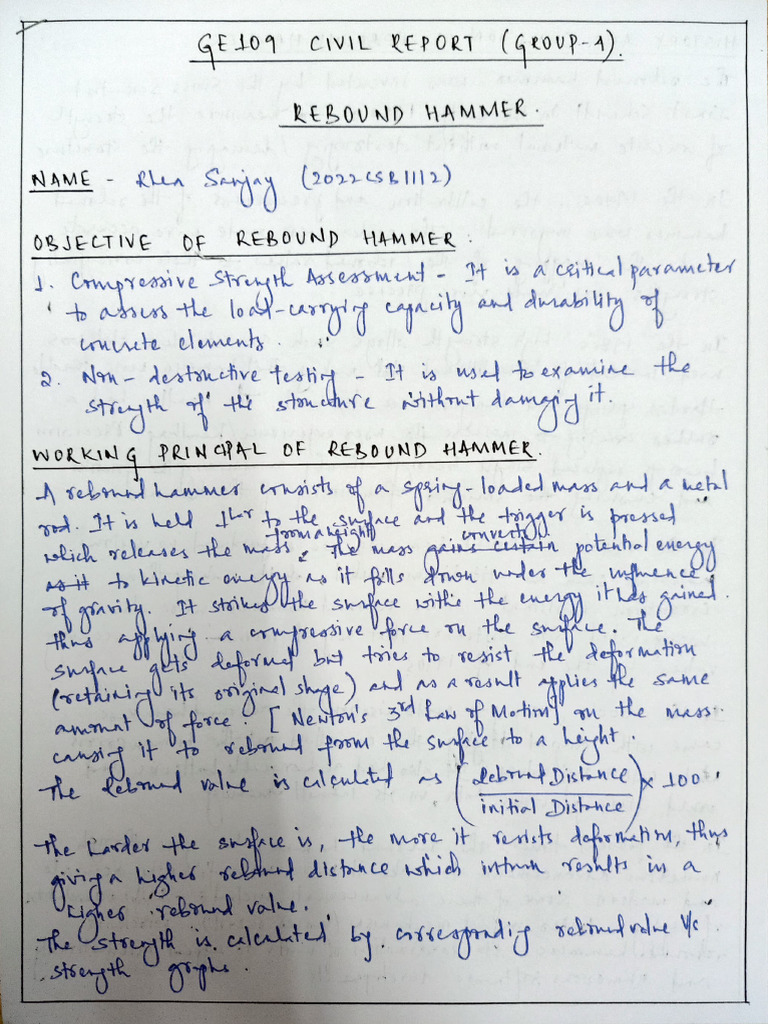 GE109 CIVIL REPORT (GROUP-1).
REBOUND HAMMER.
NAME - Rhea Sanjay (2022CSB1112)
OBJECTIVE OF REBOUND HAMMER.
1. Compressive Strength Assessment - It is a critical parameter
to assess the load-carrying capacity and durability of
concrete elements.
2. Non-destructive testing - It is used to examine the
strength of the structure without damaging it.
WORKING PRINCIPAL OF REBOUND HAMMER.
A rebound hammer consists of a spring-loaded mass and a metal
rod. It is held ⊥lar to the surface and the trigger is pressed
which releases the mass from a height. The mass gains certain converts potential energy
as it to kinetic energy as it falls down under the influence
of gravity. It strikes the surface with the energy it has gained
thus applying a compressive force on the surface. The
surface gets deformed but tries to resist the deformation
(retaining its original shape) and as a result applies the same
amount of force. [Newton's 3rd Law of Motion] on the mass
causing it to rebound from the surface to a height.
The Rebound value is calculated as (Rebound Distance / initial Distance) × 100.
The harder the surface is, the more it resists deformation, thus
giving a higher rebound distance which inturn results in a
higher rebound value.
The strength is calculated by corresponding rebound value v/s
strength graphs.